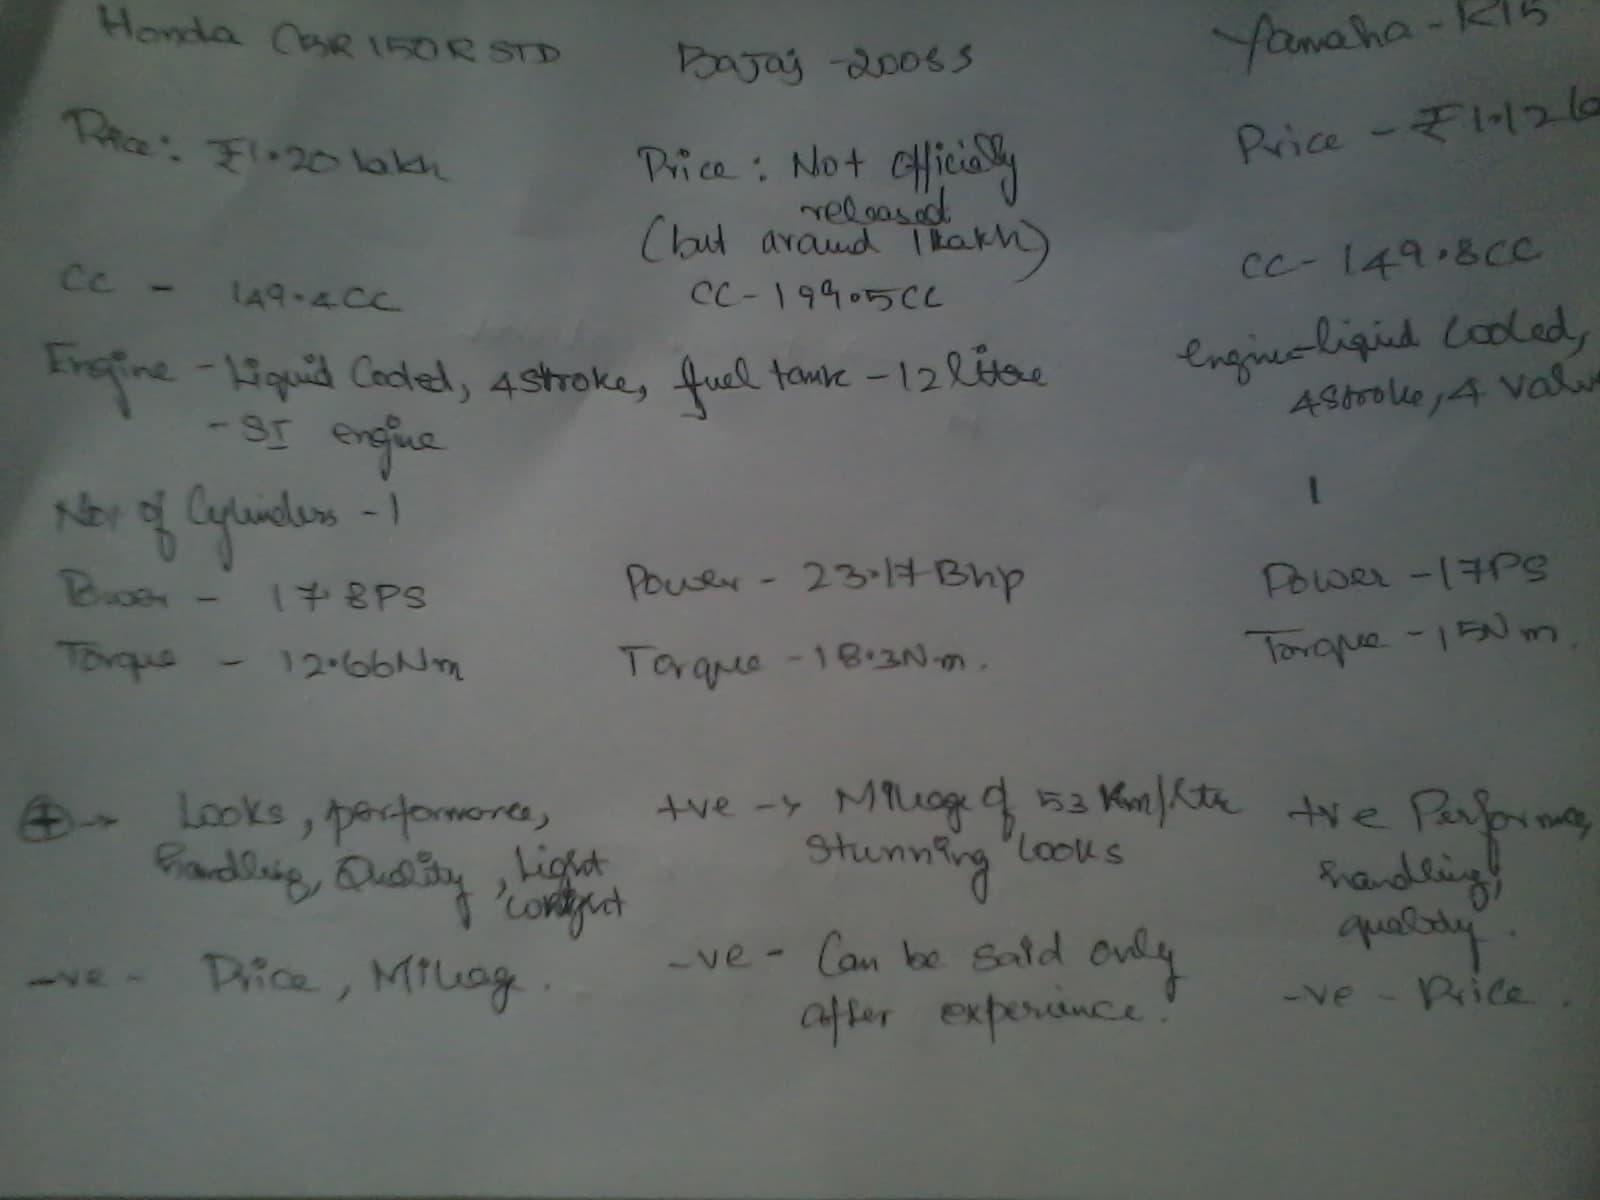 Honda CBR 150R STD
Price: ₹1.20 lakh
CC - 149.4CC
Engine - Liquid Cooled, 4 stroke, fuel tank - 12 litre
- SI engine
No. of Cylinders - 1
Power - 17.8PS
Torque - 12.66Nm
+ → Looks, performance,
handling, Quality, Light
-ve - Price, Mileag.
Bajaj - 200SS
Price: Not officially
released
(but around 1 lakh)
CC - 199.5CC
Power - 23.17 Bhp
Torque - 18.3Nm.
+ve → Mileage of 53 Km/Ltr
Stunning looks
-ve - Can be said only
after experience.
Yamaha - R15
Price - ₹1.12 la
CC - 149.8CC
engine - liquid cooled,
4 stroke, 4 valv
1
Power - 17PS
Torque - 15Nm.
+ve Performance,
handling,
quality.
-ve - Price.